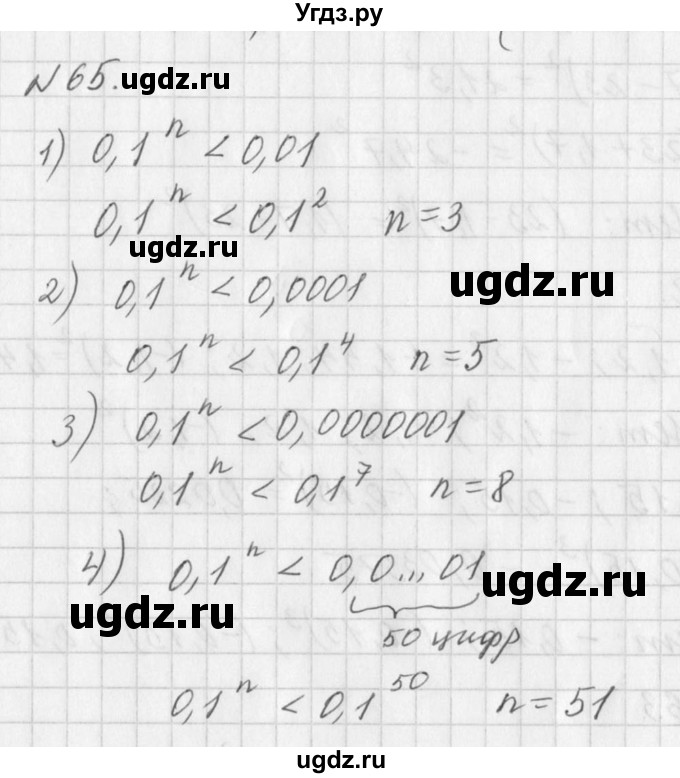 Угдз.ру
№65. ugdz.ru
1) 0,1ⁿ < 0,01
0,1ⁿ < 0,1² n=3
ugdz.ru
2) 0,1ⁿ < 0,0001 ugdz.ru
0,1ⁿ < 0,1⁴ n=5
3) 0,1ⁿ < 0,0000001
0,1ⁿ < 0,1⁷ n=8
4) 0,1ⁿ < 0,0...01 ugdz.ru
ugdz.ru 50 цифр
0,1ⁿ < 0,1⁵⁰ n=51
ugdz.ru